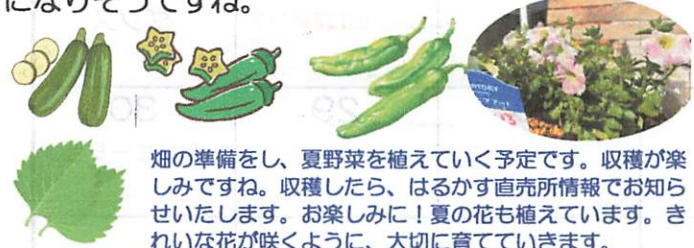 になりそうですね。
畑の準備をし、夏野菜を植えていく予定です。収穫が楽
しみですね。収穫したら、はるかす直売所情報でお知ら
せいたします。お楽しみに！夏の花も植えています。き
れいな花が咲くように、大切に育てていきます。